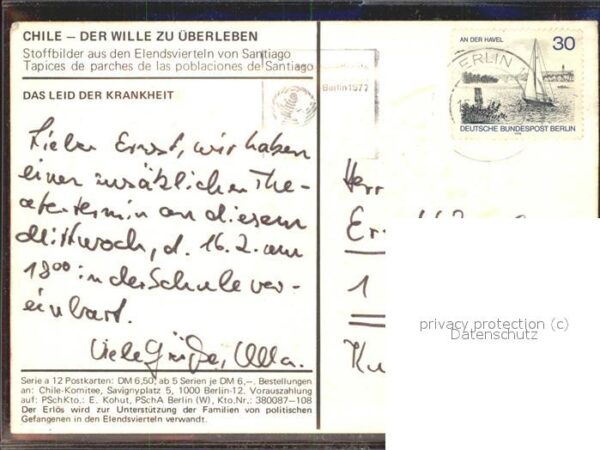 CHILE – DER WILLE ZU ÜBERLEBEN
Stoffbilder aus den Elendsvierteln von Santiago
Tapices de parches de las poblaciones de Santiago
DAS LEID DER KRANKHEIT
Lieber Ernst, wir haben
einen zusätzlichen The-
atertermin an diesem
Mittwoch, d. 16.2. um
18⁰⁰ in der Schule ver-
einbart.
Viele Grüße, Ulla.
Serie a 12 Postkarten: DM 6,50, ab 5 Serien je DM 6,–. Bestellungen
an: Chile-Komitee, Savignyplatz 5, 1000 Berlin-12. Vorauszahlung
auf: PSchKto.: E. Kohut, PSchA Berlin (W), Kto.Nr.: 380087–108
Der Erlös wird zur Unterstützung der Familien von politischen
Gefangenen in den Elendsvierteln verwandt.
Berlin 1977
BERLIN
AN DER HAVEL
30
DEUTSCHE BUNDESPOST BERLIN
Herr
Er
1
Ku
privacy protection (c)
Datenschutz